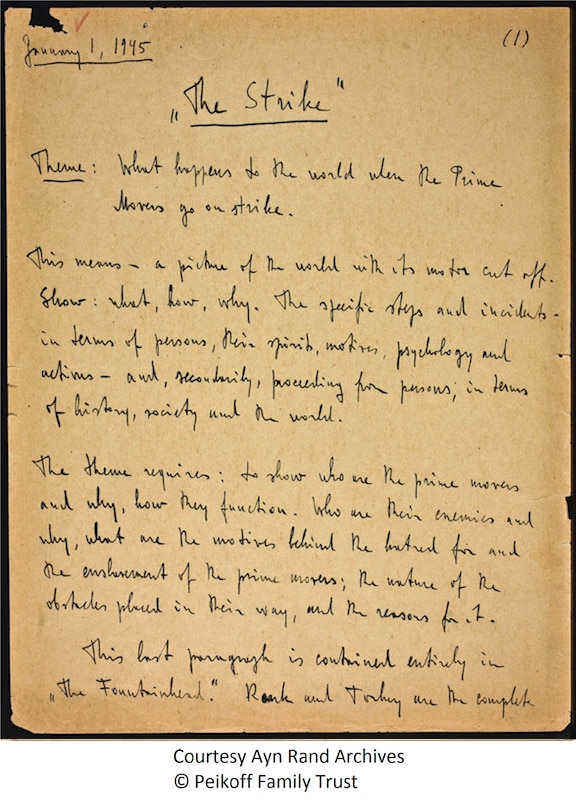 January 1, 1945
(1)
„The Strike"
Theme: What happens to the world when the Prime
Movers go on strike.
This means – a picture of the world with its motor cut off.
Show: what, how, why. The specific steps and incidents –
in terms of persons, their spirits, motives, psychology and
actions – and, secondarily, proceeding from persons, in terms
of history, society and the world.
The theme requires: to show who are the prime movers
and why, how they function. Who are their enemies and
why, what are the motives behind the hatred for and
the enslavement of the prime movers; the nature of the
obstacles placed in their way, and the reasons for it.
This last paragraph is contained entirely in
„The Fountainhead." Roark and Toohey are the complete
Courtesy Ayn Rand Archives
© Peikoff Family Trust